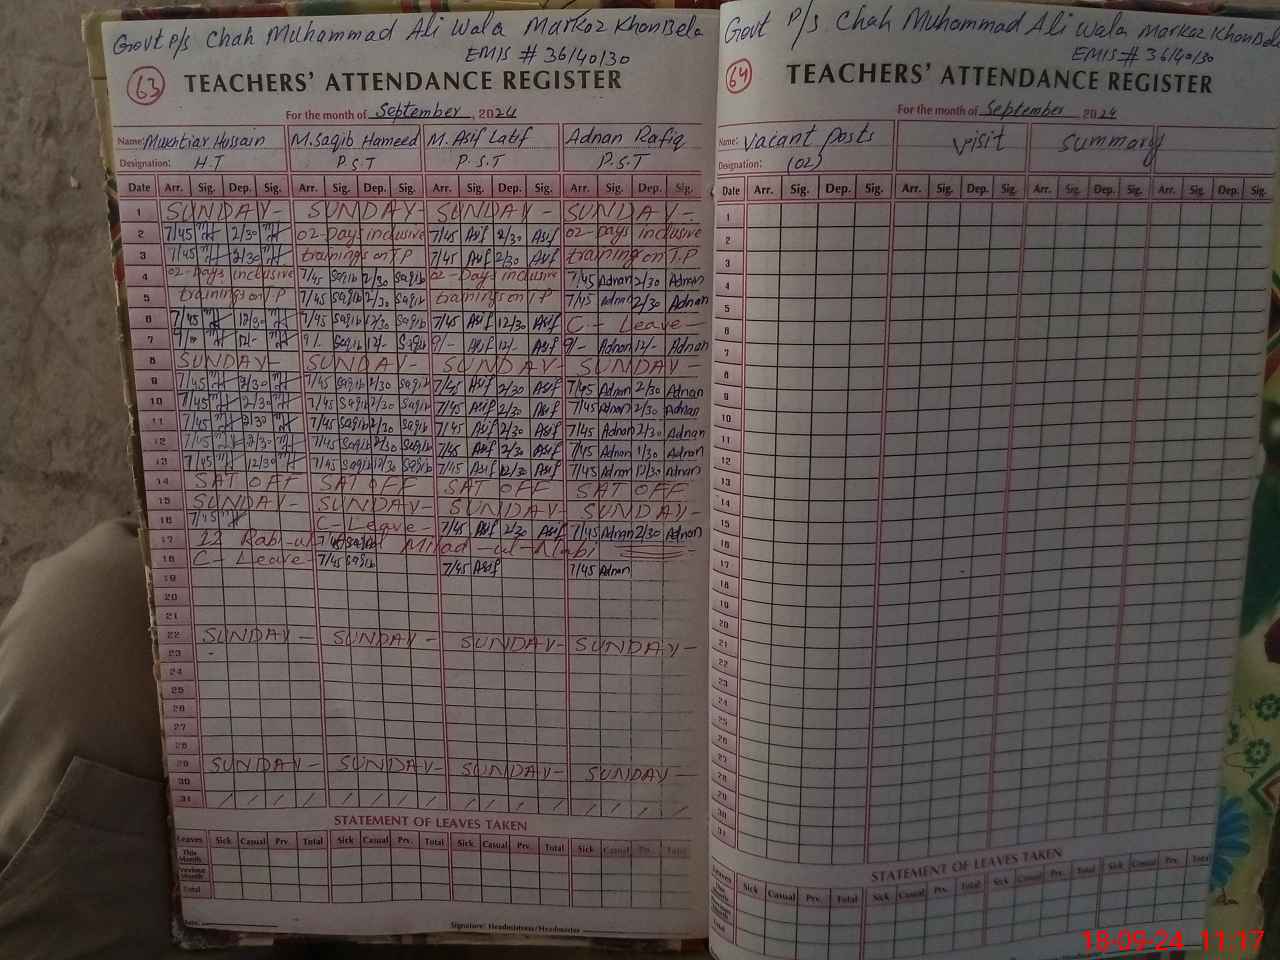 Govt P/S Chah Muhammad Ali Wala Markaz KhanBela
EMIS # 36140130
63 TEACHERS' ATTENDANCE REGISTER
For the month of September 2024
Name: Mukhtiar Hussain M.Saqib Hameed M. Asif Latif Adnan Rafiq
Designation: H.T P.S.T P.S.T P.S.T
Date Arr. Sig. Dep. Sig. Arr. Sig. Dep. Sig. Arr. Sig. Dep. Sig. Arr. Sig. Dep. Sig.
1 SUNDAY- SUNDAY- SUNDAY- SUNDAY-
2 7/45 2/30 02-Days inclusive 7/45 Asif 2/30 Asif 02-Days inclusive
3 7/45 2/30 trainings on I.P 7/45 Asif 2/30 Asif training on I.P
4 02-Days inclusive 7/45 Saqib 2/30 Saqib 02-Days inclusive 7/45 Adnan 2/30 Adnan
5 trainings on I.P 7/45 Saqib 2/30 Saqib trainings on I.P 7/45 Adnan 2/30 Adnan
6 7/45 12/30 7/45 Saqib 12/30 Saqib 7/45 Asif 12/30 Asif C- Leave-
7 9/- 12/- 9/- Saqib 12/- Saqib 9/- Asif 12/- Asif 9/- Adnan 12/- Adnan
8 SUNDAY- SUNDAY- SUNDAY- SUNDAY-
9 7/45 2/30 7/45 Saqib 2/30 Saqib 7/45 Asif 2/30 Asif 7/45 Adnan 2/30 Adnan
10 7/45 2/30 7/45 Saqib 2/30 Saqib 7/45 Asif 2/30 Asif 7/45 Adnan 2/30 Adnan
11 7/45 2/30 7/45 Saqib 2/30 Saqib 7/45 Asif 2/30 Asif 7/45 Adnan 2/30 Adnan
12 7/45 2/30 7/45 Saqib 2/30 Saqib 7/45 Asif 2/30 Asif 7/45 Adnan 1/30 Adnan
13 7/45 12/30 7/45 Saqib 12/30 Saqib 7/45 Asif 12/30 Asif 7/45 Adnan 12/30 Adnan
14 SAT OFF SAT OFF SAT OFF SAT OFF
15 SUNDAY- SUNDAY- SUNDAY- SUNDAY-
16 7/45 C-Leave- 7/45 Asif 2/30 Asif 7/45 Adnan 2/30 Adnan
17 12 Rabi-ul 7/45 Saqib Milad-ul-Nabi
18 C- Leave- 7/45 Saqib 7/45 Asif 7/45 Adnan
19
20
21
22 SUNDAY- SUNDAY- SUNDAY- SUNDAY-
23
24
25
26
27
28
29 SUNDAY- SUNDAY- SUNDAY- SUNDAY-
30
31 / / / / / / / / / / / / / / / /
STATEMENT OF LEAVES TAKEN
Leaves Sick Casual Prv. Total Sick Casual Prv. Total Sick Casual Prv. Total Sick Casual Prv. Total
This Month
Previous Month
Total
Date: Signature: Headmistress/Headmaster
Govt P/S Chah Muhammad Ali Wala Markaz KhanBela
EMIS # 36140130
64 TEACHERS' ATTENDANCE REGISTER
For the month of September 2024
Name: Vacant Posts Visit Summary
Designation: (02)
Date Arr. Sig. Dep. Sig. Arr. Sig. Dep. Sig. Arr. Sig. Dep. Sig. Arr. Sig. Dep. Sig.
1
2
3
4
5
6
7
8
9
10
11
12
13
14
15
16
17
18
19
20
21
22
23
24
25
26
27
28
29
30
31
STATEMENT OF LEAVES TAKEN
Leaves Sick Casual Prv. Total Sick Casual Prv. Total Sick Casual Prv. Total Sick Casual Prv. Total
This Month
Previous Month
Total
18-09-24 11:17